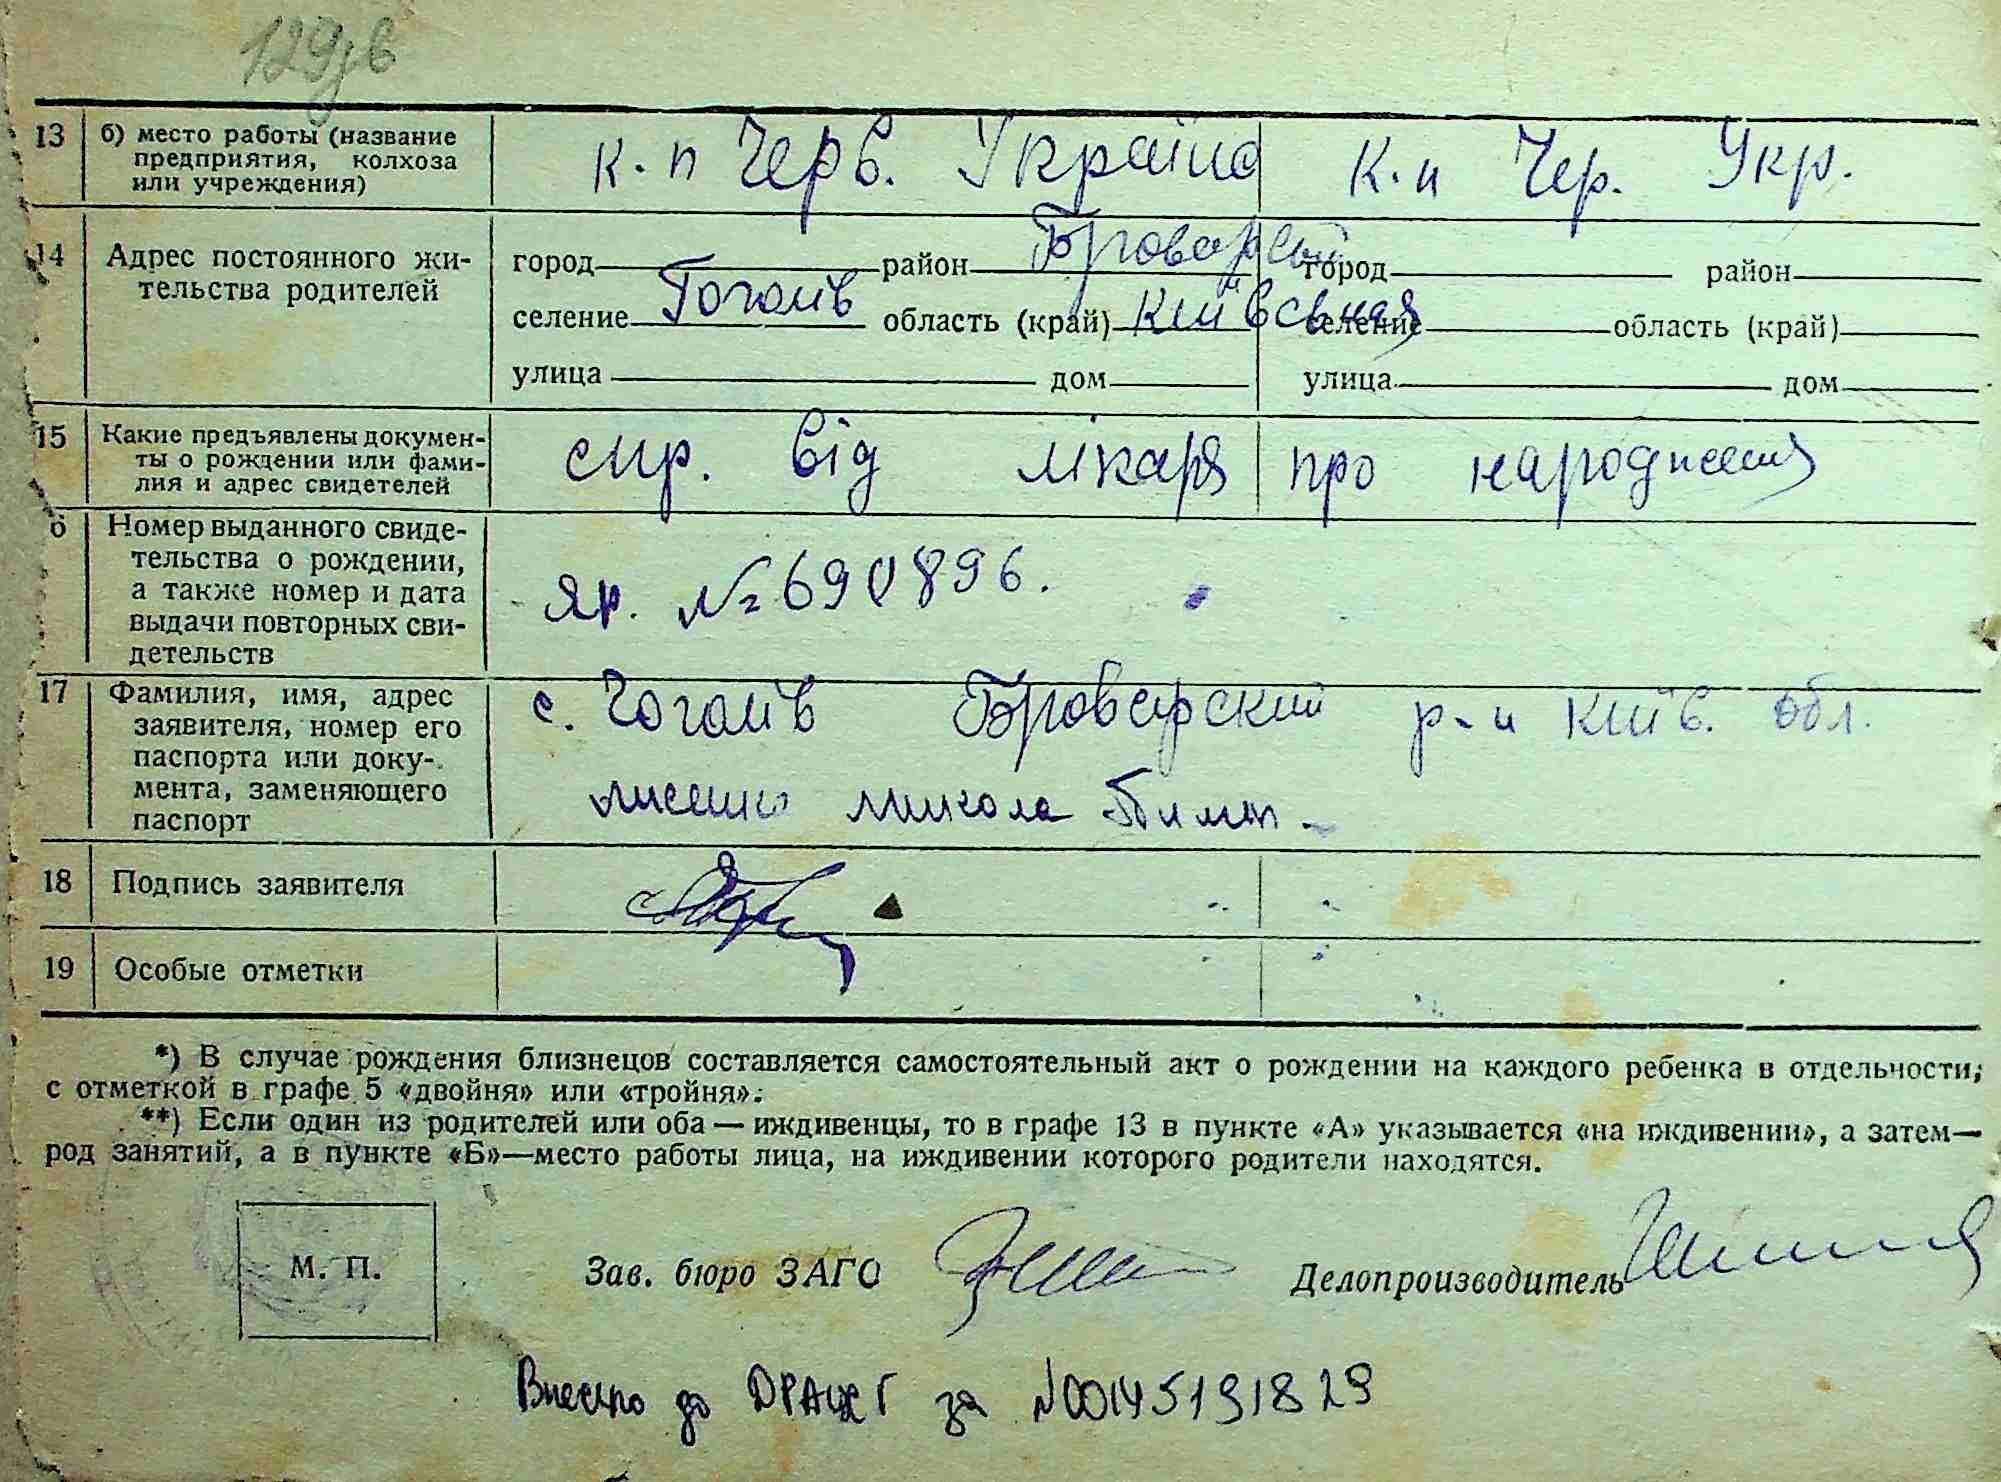 129зв
13 б) место работы (название предприятия, колхоза или учреждения) к-п Черв. Україна к-п Чер. Укр.
14 Адрес постоянного жи-
тельства родителей
город район Броварський город район
селение Гоголів область (край) Київська селение область (край)
улица дом улица дом
15 Какие предъявлены докумен-
ты о рождении или фами-
лия и адрес свидетелей
спр. від лікаря про народження
6 Номер выданного свиде-
тельства о рождении,
а также номер и дата
выдачи повторных сви-
детельств
яр. № 690896.
17 Фамилия, имя, адрес
заявителя, номер его
паспорта или доку-
мента, заменяющего
паспорт
с. Гоголів Броварский р-н Київ. обл.
микола
18 Подпись заявителя
19 Особые отметки
*) В случае рождения близнецов составляется самостоятельный акт о рождении на каждого ребенка в отдельности,
с отметкой в графе 5 «двойня» или «тройня».
**) Если один из родителей или оба — иждивенцы, то в графе 13 в пункте «А» указывается «на иждивении», а затем—
род занятий, а в пункте «Б»—место работы лица, на иждивении которого родители находятся.
М. П.
Зав. бюро ЗАГС Делопроизводитель
Внесено до ДРАЦСГ за №00145191829